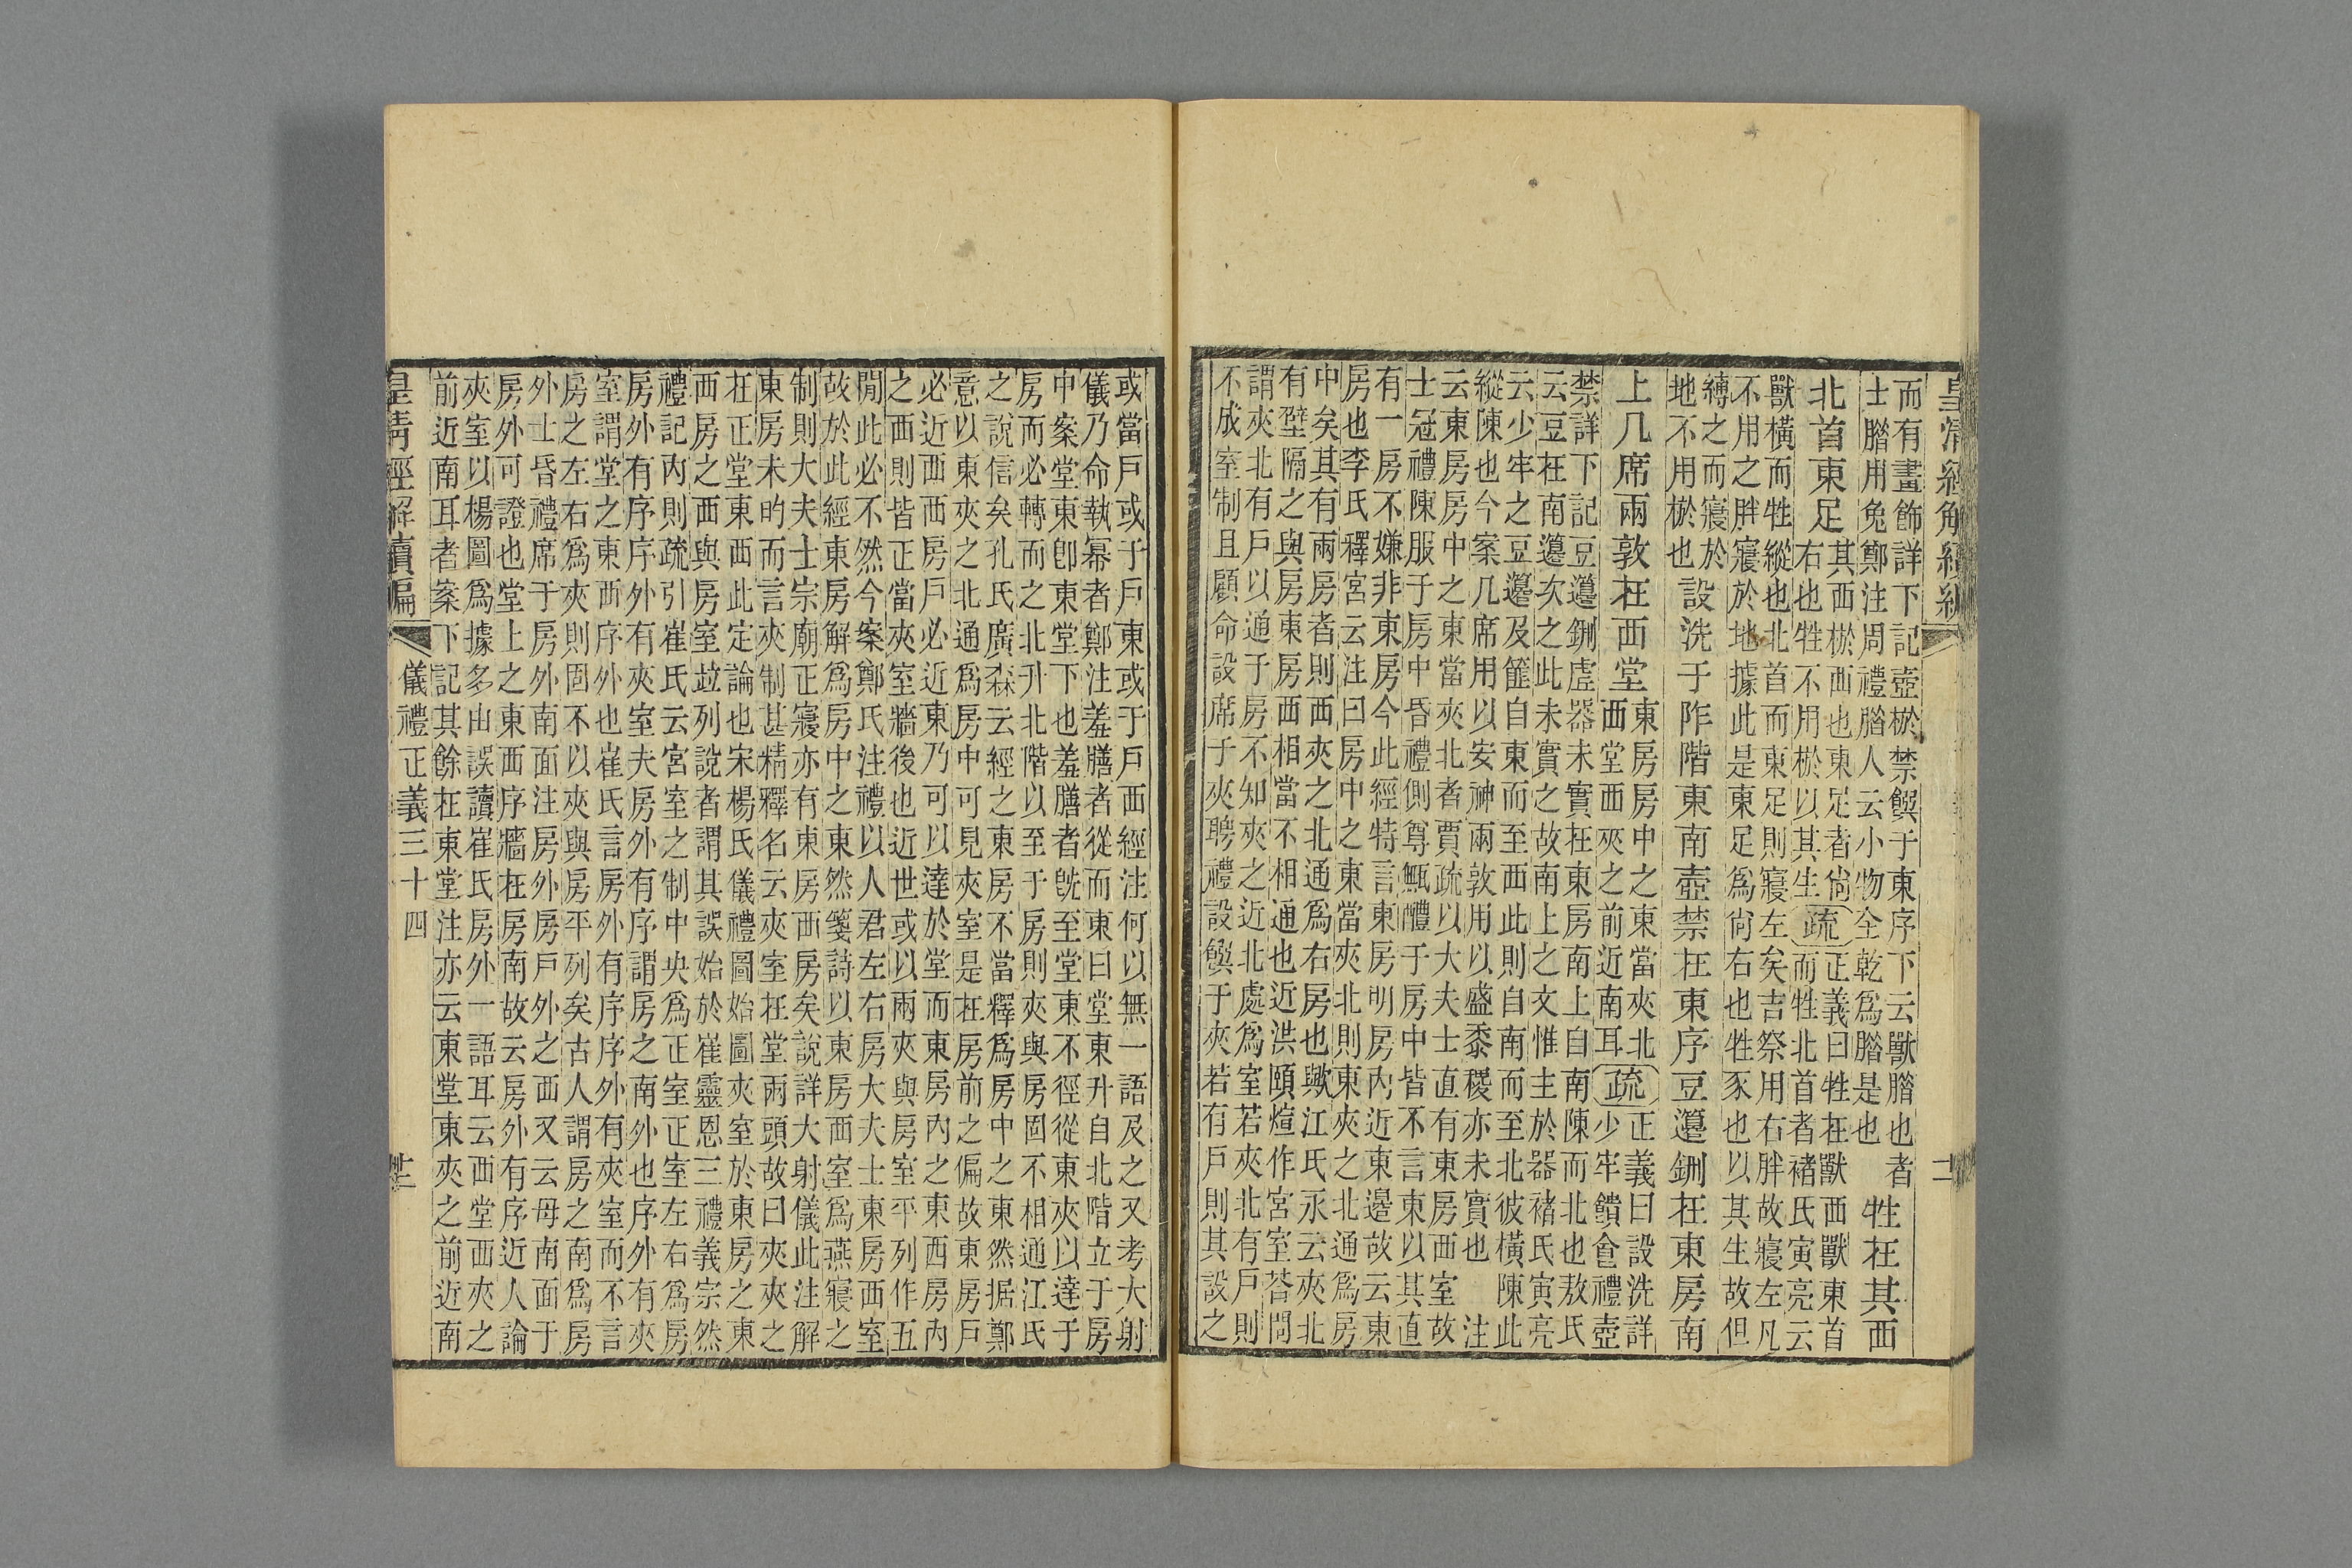 皇清經解續編
而有畫飾詳下記壺棜禁饌于東序下云獸腊也者
士腊用兔鄭注周禮腊人云小物全乾爲腊是也
牲在其西
北首東足
其西棜西也東足者尙
右也牲不用棜以其生
疏
正義曰牲在獸西獸東首
而牲北首者褚氏寅亮云
獸橫而牲縱也北首而東足則寢左矣吉祭用右胖故寢左凡
不用之胖寢於地據此是東足爲尙右也牲豕也以其生故但
縛之而寢於
地不用棜也
設洗于阼階東南壺禁在東序豆籩鉶在東房南
上几席兩敦在西堂
東房房中之東當夾北
西堂西夾之前近南耳
疏
正義曰設洗詳
少牢饋食禮壺
禁詳下記豆籩鉶虛器未實在東房南上自南陳而北也敖氏
云豆在南籩次之此未實之故南上之文惟主於器褚氏寅亮
云少牢之豆籩及篚自東而至西此則自南而至北彼橫陳此
縱陳也今案几席用以安神兩敦用以盛黍稷亦未實也 注
云東房房中之東當夾北者賈疏以大夫士直有東房西室故
士冠禮陳服于房中昏禮側尊甒醴于房中皆不言東以其直
有一房不嫌非東房今此經特言東房明房內近東邊故云東
房也李氏釋宮云注曰房中之東當夾北則東夾之北通爲房
中矣其有兩房者則西夾之北通爲右房也歟江氏永云夾北
有壁隔之與房東房西相當不相通也近洪頤煊作宮室荅問
謂夾北有戶以通于房不知夾之近北處爲室若夾北有戶則
不成室制且顧命設席于夾聘禮設饌于夾若有戶則其設之
或當戶或于戶東或于戶西經注何以無一語及之又考大射
儀乃命執冪者鄭注羞膳者從而東曰堂東升自北階立于房
中案堂東卽東堂下也羞膳者旣至堂東不徑從東夾以達于
房而必轉而之北升北階以至于房則夾與房固不相通江氏
之說信矣孔氏廣森云經之東房不當釋爲房中之東然据鄭
意以東夾之北通爲房中可見夾室是在房前之偏故東房戶
必近西西房戶必近東乃可以達於堂而東房內之東西房內
之西則皆正當夾室牆後也近世或以兩夾與房室平列作五
閒此必不然今案鄭氏注禮以人君左右房大夫士東房西室
故於此經東房解爲房中之東然箋詩以東房西室爲燕寢之
制則大夫士宗廟正寢亦有東房西房矣說詳大射儀此注解
東房未昀而言夾制甚精釋名云夾室在堂兩頭故曰夾夾之
在正堂東西此定論也宋楊氏儀禮圖始圖夾室於東房之東
西房之西與房室竝列說者謂其誤始於崔靈恩三禮義宗然
禮記內則疏引崔氏云宮室之制中央爲正室正室左右爲房
房外有序序外有夾室夫房外有序謂房之南外也序外有夾
室謂堂之東西序外也崔氏言房外有序序外有夾室而不言
房之左右爲夾則固不以夾與房平列矣古人謂房之南爲房
外士昏禮席于房外南面注房外房戶外之西又云母南面于
房外可證也堂上之東西序牆在房南故云房外有序近人論
夾室以楊圖爲據多由誤讀崔氏房外一語耳云西堂西夾之
前近南耳者案下記其餘在東堂注亦云東堂東夾之前近南
皇清經解續編
儀禮正義三十四